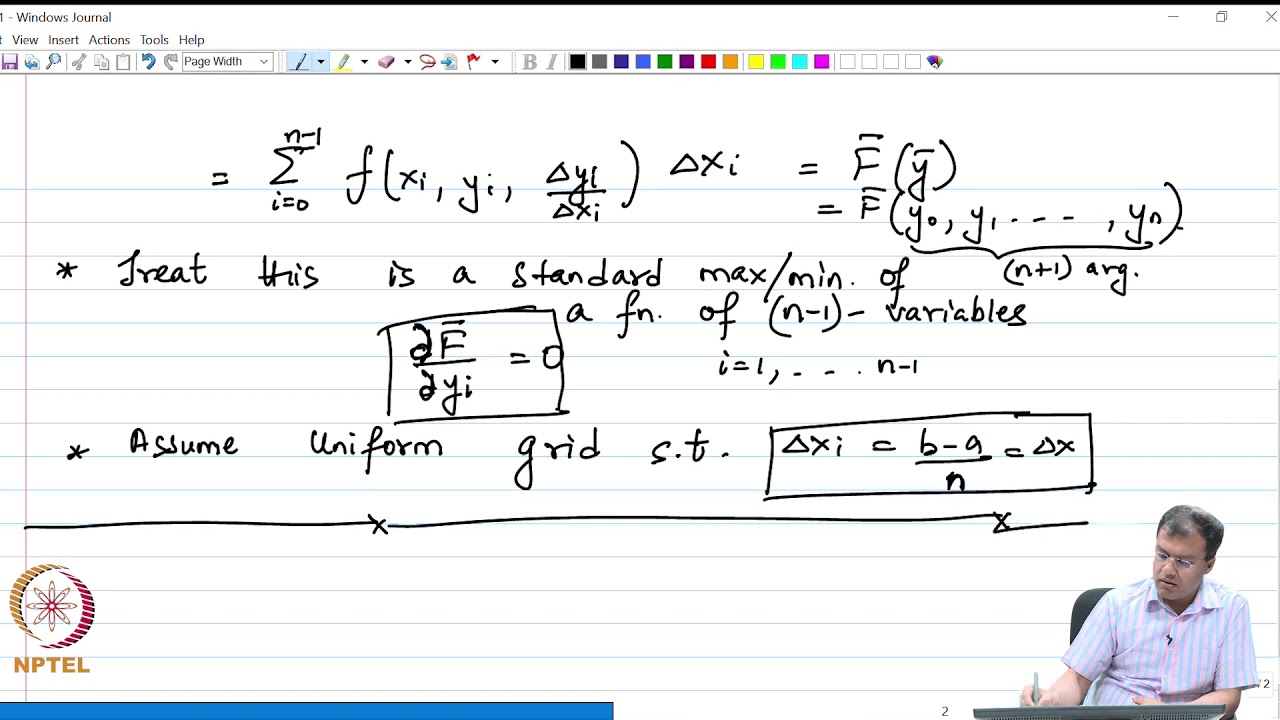 1 - Windows Journal
t View Insert Actions Tools Help
Page Width B I
= Σ_{i=0}^{n-1} f(xi, yi, Δyi/Δxi) Δxi = F̄(ȳ)
= F̄(y₀, y₁ - - - -, yn).
(n+1) arg.
* Treat this is a standard max/min. of
a fn. of (n-1) - variables
∂F̄/∂yi = 0
i=1, - - . n-1
* Assume Uniform grid s.t. Δxi = b-a/n = Δx
x x
NPTEL
2
/2